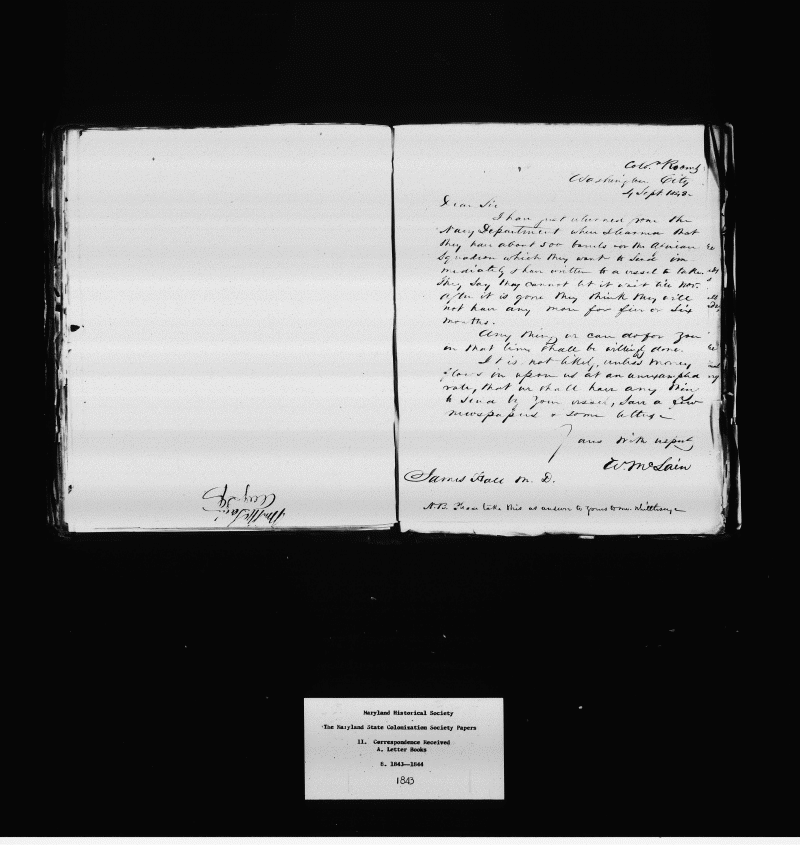 Colo.n Rooms
Washington City
4 Sept 1843.
Dear Sir
I have just returned from the
Navy Department where I learned that
they have about 500 barrels for the African
Squadron which they want to send im
mediately & have written to a vessel to take.
They say they cannot let it wait till Nov.
after it is gone they think they will
not have any more for five or six
months.
Any thing we can do for you
in that line shall be willingly done.
It is not likely, unless money
flows in upon us at an unexampled
rate, that we shall have any thing
to send by your vessel, save a few
newspapers & some letters
Yours with respect
W McLain
James Hall M. D.
N.B. Please take this as answer to yours to
Maryland Historical Society
The Maryland State Colonization Society Papers
II. Correspondence Received
A. Letter Books
8. 1843--1844
1843